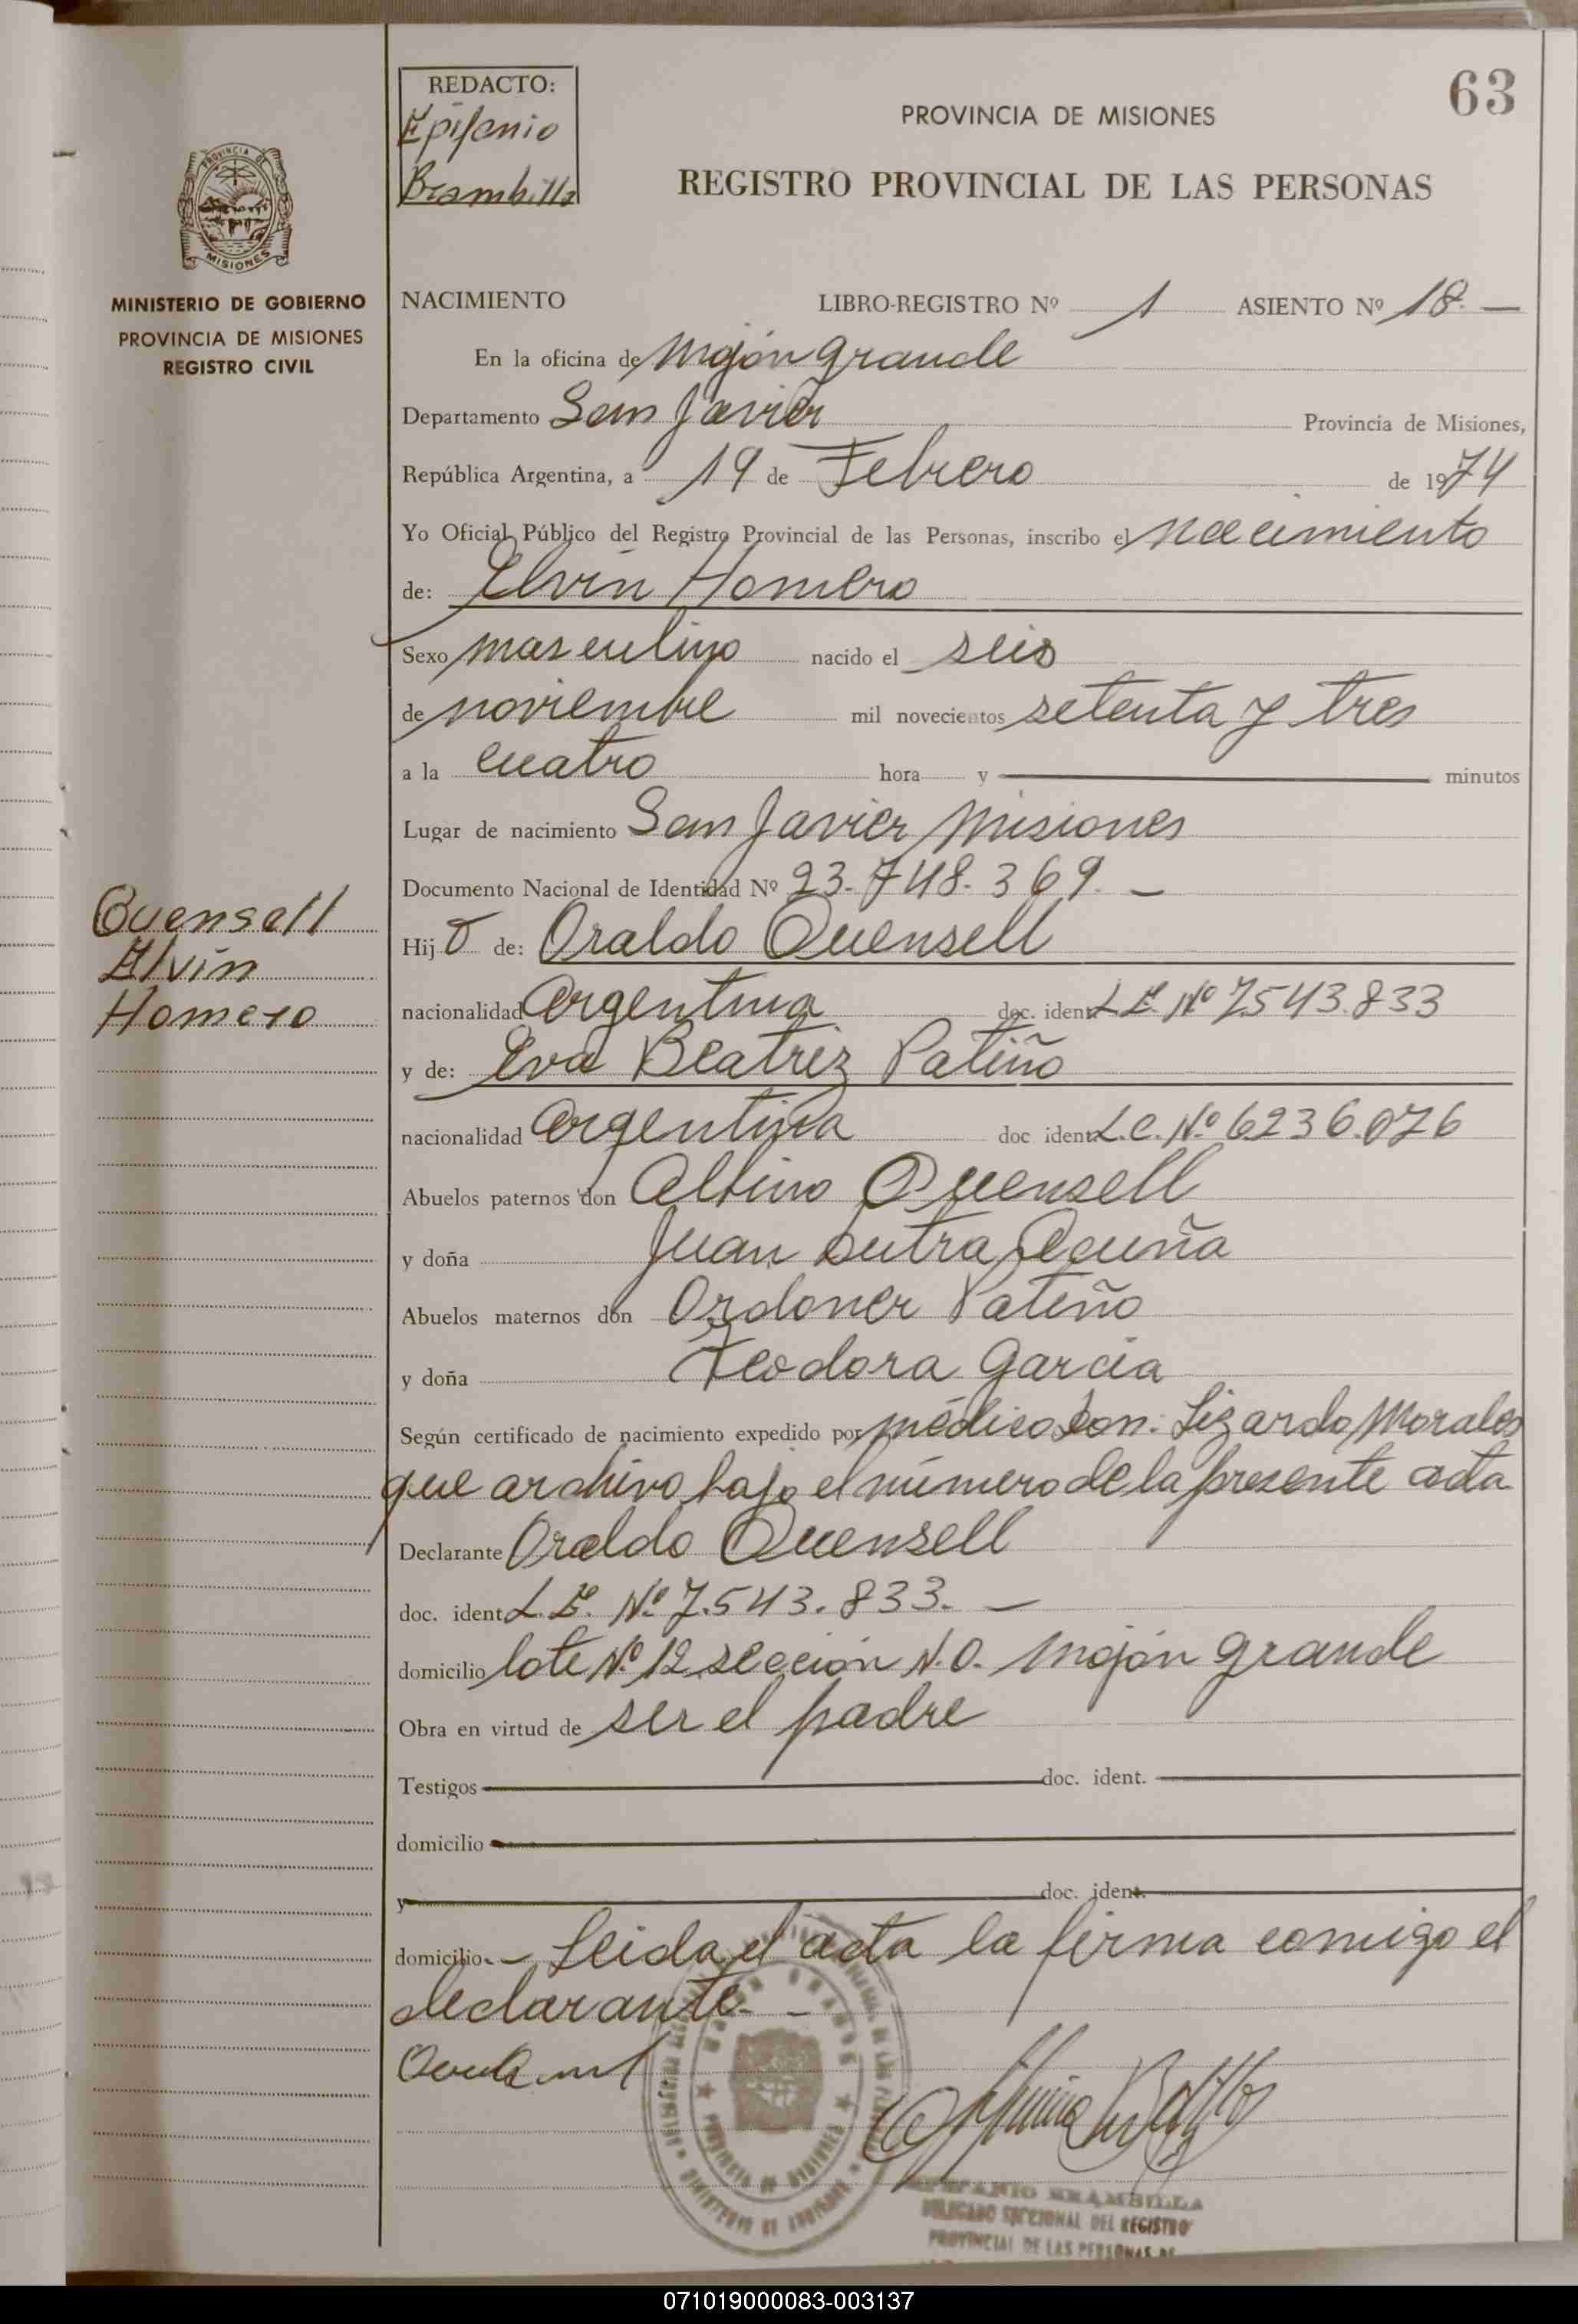 63
REDACTO:
Epifanio
Brambilla
PROVINCIA DE MISIONES
REGISTRO PROVINCIAL DE LAS PERSONAS
PROVINCIA DE
MISIONES
MINISTERIO DE GOBIERNO
PROVINCIA DE MISIONES
REGISTRO CIVIL
NACIMIENTO LIBRO-REGISTRO Nº 1 ASIENTO Nº 18.—
En la oficina de Mojón grande
Departamento San Javier Provincia de Misiones,
República Argentina, a 19 de Febrero de 1974
Yo Oficial Público del Registro Provincial de las Personas, inscribo el nacimiento
de: Elvin Homero
Sexo masculino nacido el seis
de noviembre mil novecientos setenta y tres
a la cuatro hora y — minutos
Lugar de nacimiento San Javier Misiones
Documento Nacional de Identidad Nº 23.748.369.—
Quensell
Elvin
Homero
Hijo de: Oraldo Quensell
nacionalidad Argentina doc. ident. L.E. Nº 7543.833
y de: Eva Beatriz Patiño
nacionalidad Argentina doc ident. L.C. Nº 6236.076
Abuelos paternos don Albino Quensell
y doña Juan Dutra Acuña
Abuelos maternos don Ordoner Patiño
y doña Teodora Garcia
Según certificado de nacimiento expedido por médico Don: Lizardo Morales
que archivo bajo el número de la presente acta
Declarante Oraldo Quensell
doc. ident. L.E. Nº 7.543.833.—
domicilio lote Nº 12 sección N.O. Mojón grande
Obra en virtud de ser el padre
Testigos — doc. ident. —
domicilio —
y — doc. ident. —
domicilio.— Leida el acta la firma comigo el
declarante.—
EPIFANIO BRAMBILLA
DELEGADO SECCIONAL DEL REGISTRO
PROVINCIAL DE LAS PERSONAS DE
071019000083-003137